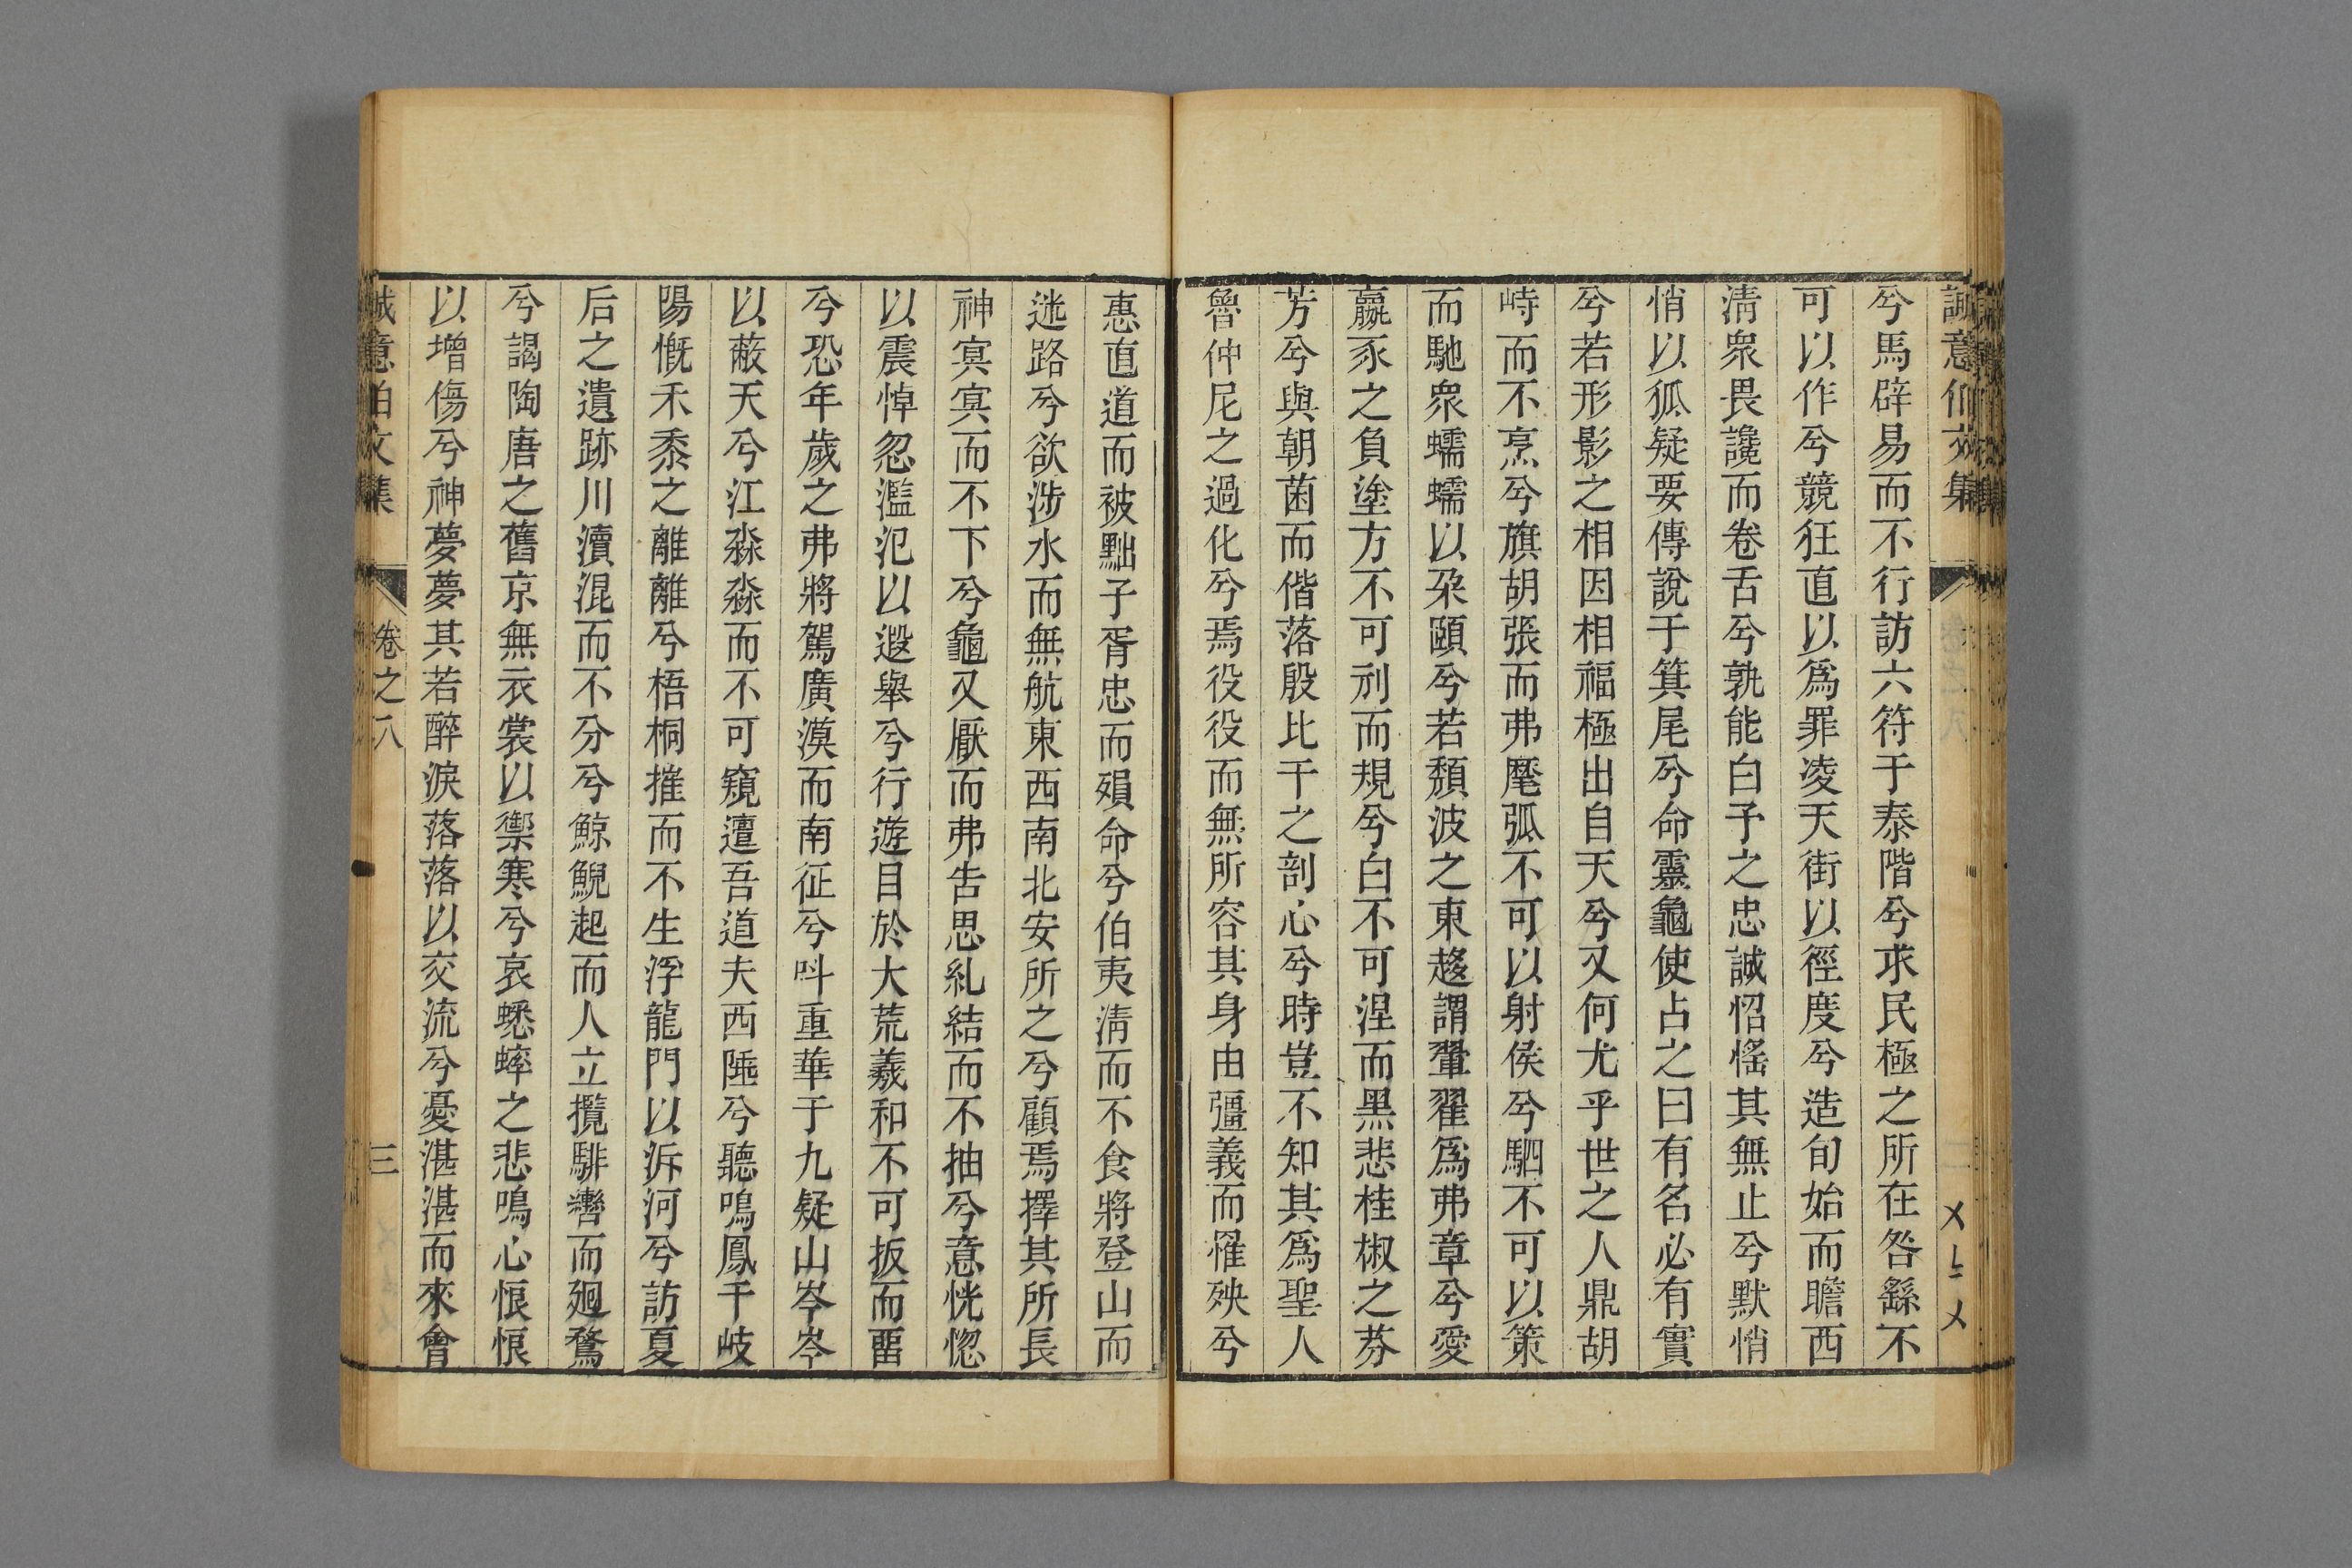 誠意伯文集
兮馬辟易而不行訪六符于泰階兮求民極之所在咎繇不
可以作兮競狂直以爲罪凌天街以徑度兮造旬始而瞻西
淸衆畏讒而卷舌兮孰能白予之忠誠怊慅其無止兮默悄
悄以狐疑要傳說于箕尾兮命靈龜使占之曰有名必有實
兮若形影之相因相福極出自天兮又何尤乎世之人鼎胡
峙而不烹兮旗胡張而弗麾弧不可以射侯兮駟不可以策
而馳衆蠕蠕以朶頤兮若頹波之東趨謂鞏翟爲弗章兮愛
羸豕之負塗方不可刓而規兮白不可涅而黑悲桂椒之芬
芳兮與朝菌而偕落殷比干之剖心兮時豈不知其爲聖人
魯仲尼之過化兮焉役役而無所容其身由彊義而罹殃兮
惠直道而被黜子胥忠而殞命兮伯夷淸而不食將登山而
迷路兮欲涉水而無航東西南北安所之兮顧焉擇其所長
神冥冥而不下兮龜又厭而弗告思糺結而不抽兮意恍惚
以震悼忽濫汜以遐舉兮行遊目於大荒羲和不可扳而畱
兮恐年歲之弗將駕廣漠而南征兮呌重華于九疑山岑岑
以蔽天兮江淼淼而不可窺邅吾道夫西陲兮聽鳴鳳于岐
陽慨禾黍之離離兮梧桐摧而不生浮龍門以泝河兮訪夏
后之遺跡川瀆混而不分兮鯨鯢起而人立攬騑轡而廻騖
兮謁陶唐之舊京無衣裳以禦寒兮哀蟋蟀之悲鳴心悢悢
以增傷兮神夢夢其若醉淚落落以交流兮憂湛湛而來會
誠意伯文集
卷之八
三